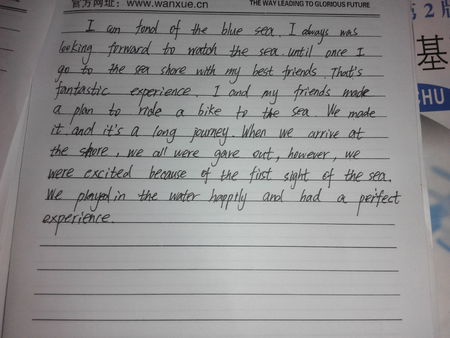 官方网址: www.wanxue.cn THE WAY LEADING TO GLORIOUS FUTURE
I am fond of the blue sea. I always was
looking forward to watch the sea until once I
go to the sea shore with my best friends. That's
fantastic experience. I and my friends made
a plan to ride a bike to the sea. We made
it and it's a long journey. When we arrive at
the shore, we all were gave out, however, we
were excited because of the first sight of the sea.
We played in the water happily and had a perfect
experience.
第2版
基
SHU